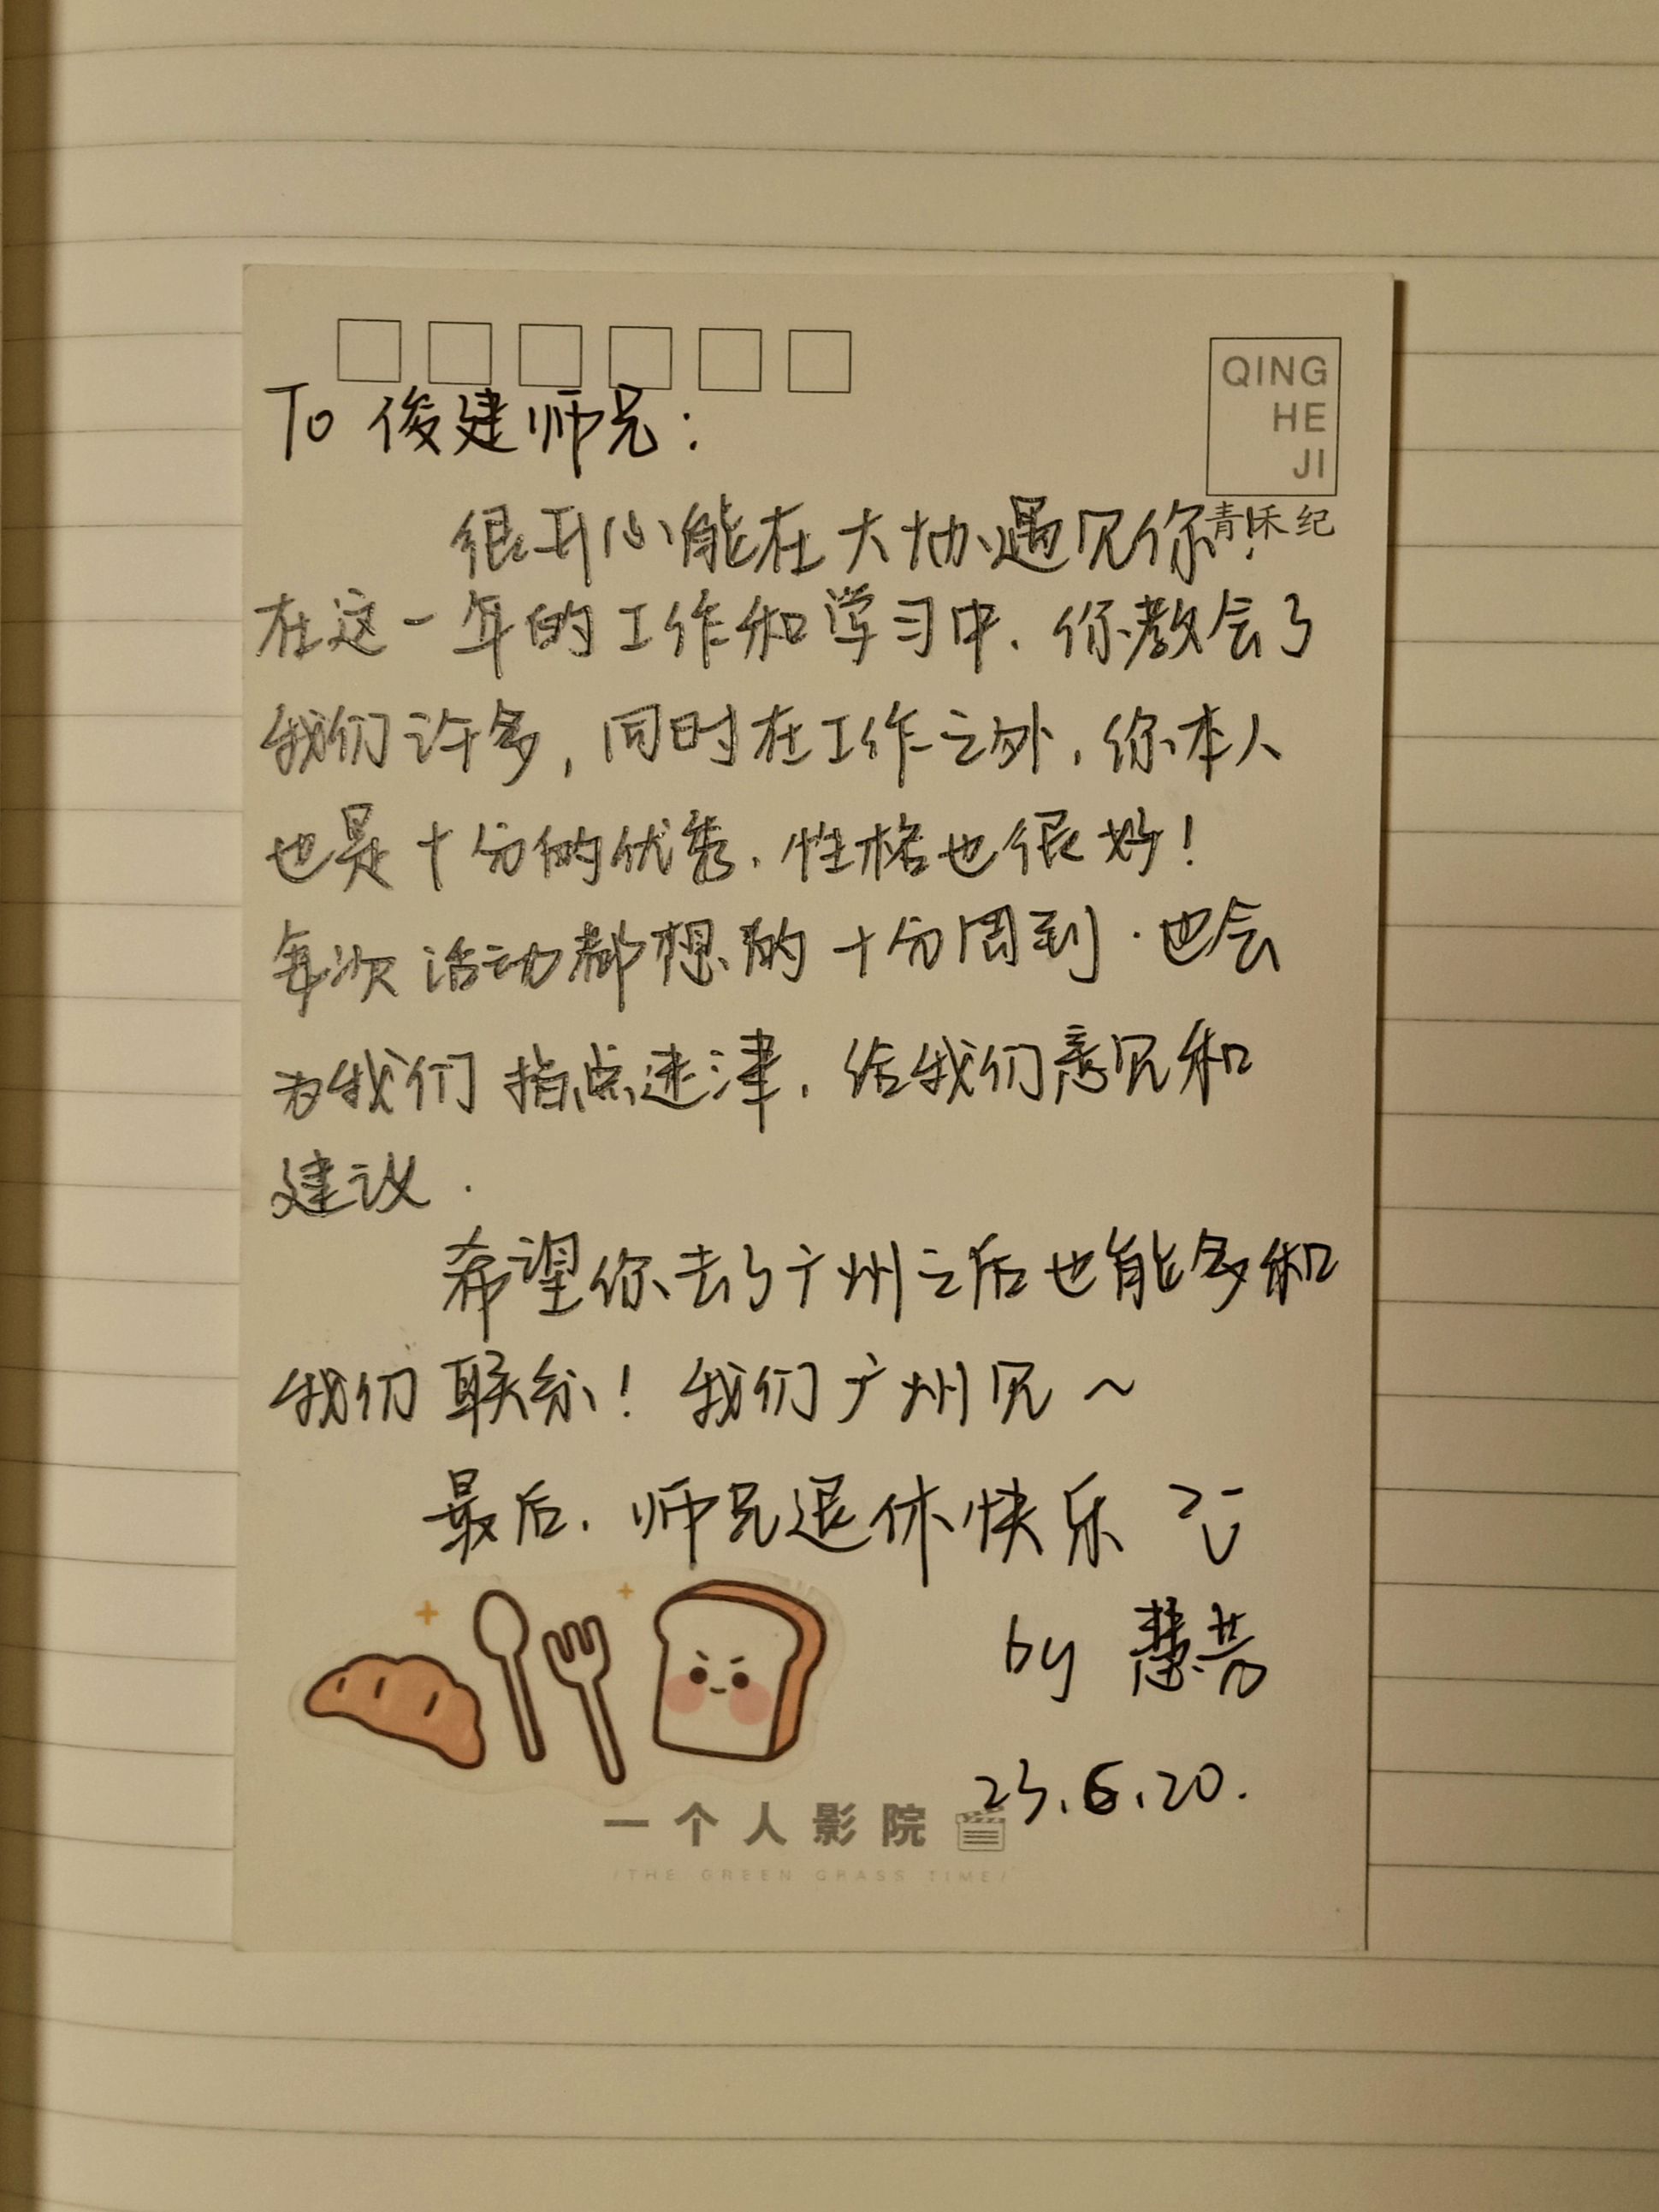 QING
HE
JI
青禾纪
To 俊建师兄：
很开心能在大协遇见你！
在这一年的工作和学习中，你教会了
我们许多，同时在工作之外，你本人
也是十分的优秀，性格也很好！
每次活动都想的十分周到，也会
为我们指点迷津，给我们意见和
建议.
希望你去了广州之后也能多和
我们联系！我们广州见～
最后，师兄退休快乐
by 慧芸
23.6.20.
一个人影院
/THE GREEN GRASS TIME/